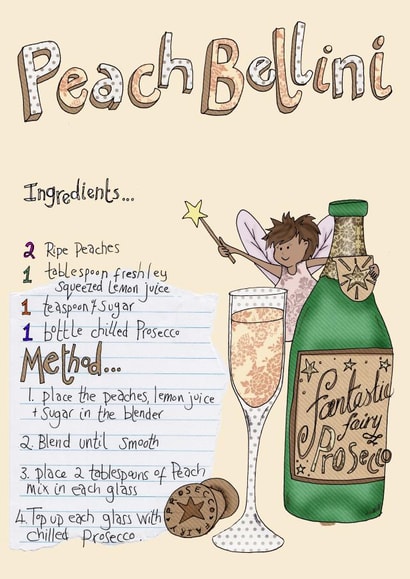 Peach Bellini
Ingredients...
2 Ripe Peaches
1 tablespoon freshley
Squeezed Lemon juice
1 teaspoon of Sugar
1 bottle chilled Prosecco
Method...
1. place the peaches, lemon juice
+ Sugar in the blender
2. Blend until smooth
3. place 2 tablespouns of Peach
mix in each glass
4. Top up each glass with
chilled Prosecco.
fantastic
fairy
Prosecco
PROSECCO
FAIRY